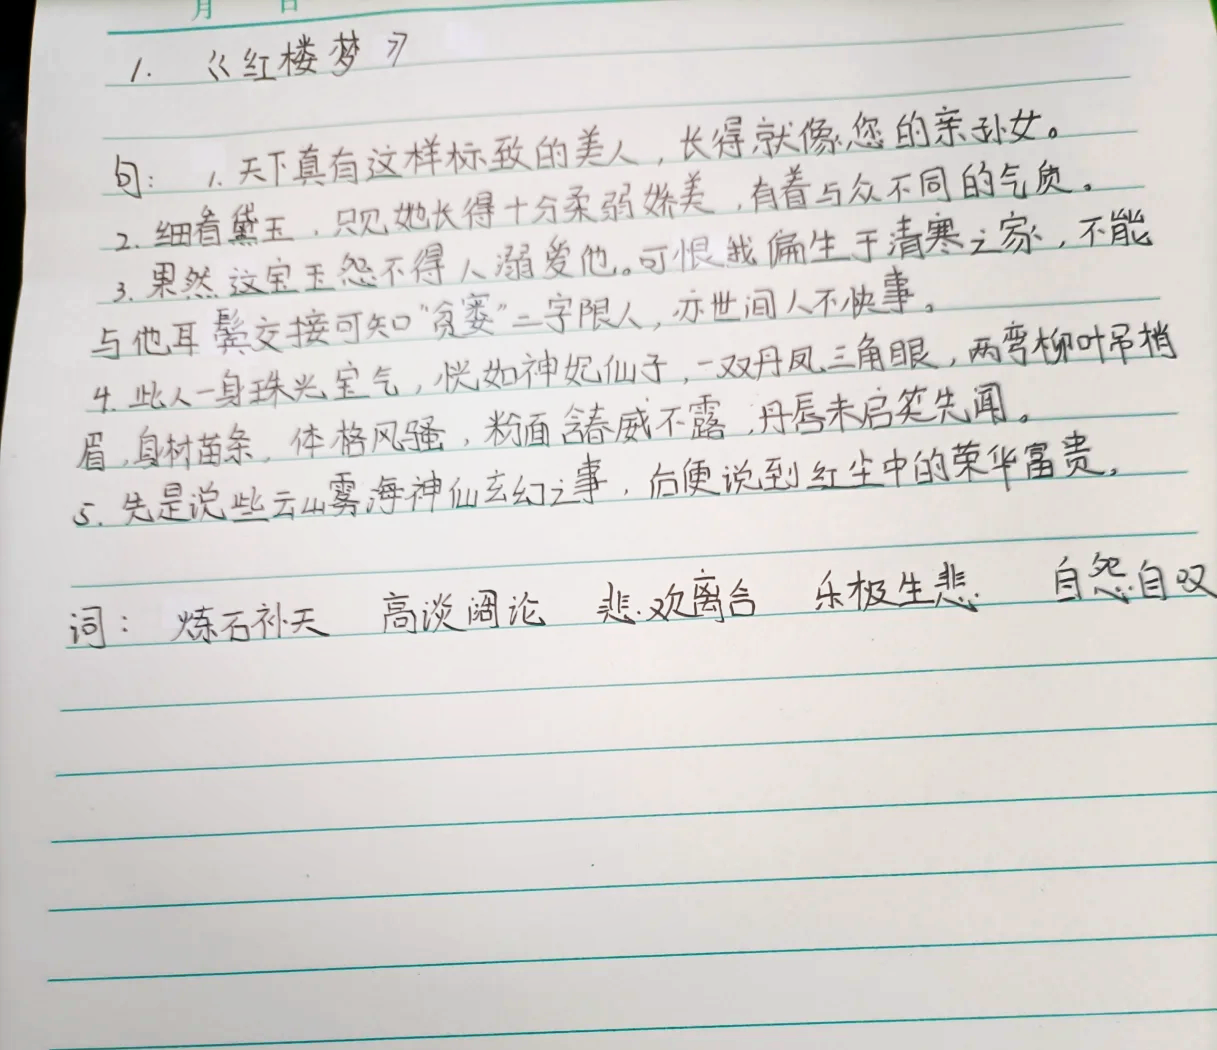 月 日
1. 《红楼梦》
句: 1. 天下真有这样标致的美人,长得就像您的亲孙女。
2. 细看黛玉,只见她长得十分柔弱娇美,有着与众不同的气质。
3. 果然这宝玉怨不得人溺爱他。可恨我偏生于清寒之家,不能
与他耳鬓交接可知“贫窭”二字限人,亦世间人不快事。
4. 此人一身珠光宝气,恍如神妃仙子,一双丹凤三角眼,两弯柳叶吊梢
眉,身材苗条,体格风骚,粉面含春威不露,丹唇未启笑先闻。
5. 先是说些云山雾海神仙玄幻之事,后便说到红尘中的荣华富贵。
词: 炼石补天 高谈阔论 悲欢离合 乐极生悲 自怨自叹